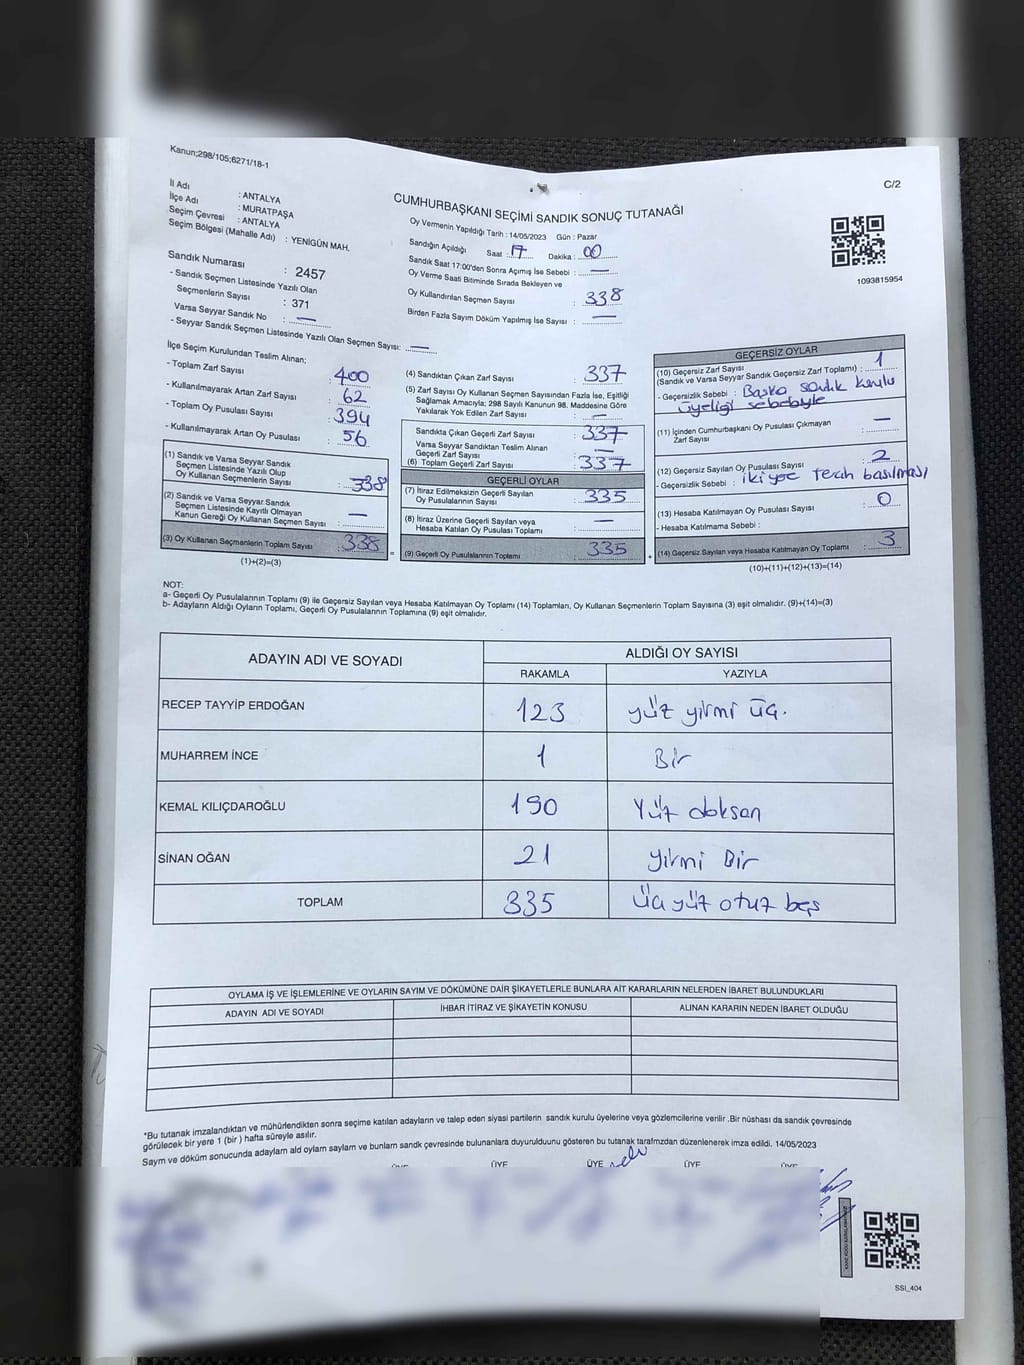 Kanun;298/105;6271/18-1
C/2
İl Adı : ANTALYA
İlçe Adı : MURATPAŞA
Seçim Çevresi : ANTALYA
Seçim Bölgesi (Mahalle Adı) : YENİGÜN MAH.
Sandık Numarası : 2457
- Sandık Seçmen Listesinde Yazılı Olan
Seçmenlerin Sayısı : 371
Varsa Seyyar Sandık No : —
- Seyyar Sandık Seçmen Listesinde Yazılı Olan Seçmen Sayısı: —
CUMHURBAŞKANI SEÇİMİ SANDIK SONUÇ TUTANAĞI
Oy Vermenin Yapıldığı Tarih : 14/05/2023 Gün : Pazar
Sandığın Açıldığı Saat : 17 Dakika : 00
Sandık Saat 17:00'den Sonra Açımış İse Sebebi : —
Oy Verme Saati Bitiminde Sırada Bekleyen ve
Oy Kullandırılan Seçmen Sayısı : 338
Birden Fazla Sayım Döküm Yapılmış İse Sayısı : —
1093815954
İlçe Seçim Kurulundan Teslim Alınan;
- Toplam Zarf Sayısı : 400
- Kullanılmayarak Artan Zarf Sayısı : 62
- Toplam Oy Pusulası Sayısı : 394
- Kullanılmayarak Artan Oy Pusulası : 56
(1) Sandık ve Varsa Seyyar Sandık
Seçmen Listesinde Yazılı Olup
Oy Kullanan Seçmenlerin Sayısı : 338
(2) Sandık ve Varsa Seyyar Sandık
Seçmen Listesinde Kayıtlı Olmayan
Kanun Gereği Oy Kullanan Seçmen Sayısı : —
(3) Oy Kullanan Seçmenlerin Toplam Sayısı : 338
(1)+(2)=(3)
(4) Sandıktan Çıkan Zarf Sayısı : 337
(5) Zarf Sayısı Oy Kullanan Seçmen Sayısından Fazla İse, Eşitliği
Sağlamak Amacıyla; 298 Sayılı Kanunun 98. Maddesine Göre
Yakılarak Yok Edilen Zarf Sayısı : —
Sandıkta Çıkan Geçerli Zarf Sayısı : 337
Varsa Seyyar Sandıktan Teslim Alınan
Geçerli Zarf Sayısı : —
(6) Toplam Geçerli Zarf Sayısı : 337
GEÇERLİ OYLAR
(7) İtiraz Edilmeksizin Geçerli Sayılan
Oy Pusulalarının Sayısı : 335
(8) İtiraz Üzerine Geçerli Sayılan veya
Hesaba Katılan Oy Pusulası Toplamı : —
(9) Geçerli Oy Pusulalarının Toplamı : 335
GEÇERSİZ OYLAR
(10) Geçersiz Zarf Sayısı
(Sandık ve Varsa Seyyar Sandık Geçersiz Zarf Toplamı) : 1
- Geçersizlik Sebebi : Başka sandık kurulu
üyeliği sebebiyle
(11) İçinden Cumhurbaşkanı Oy Pusulası Çıkmayan
Zarf Sayısı : —
(12) Geçersiz Sayılan Oy Pusulası Sayısı : 2
- Geçersizlik Sebebi : iki yere Tercih basılması
(13) Hesaba Katılmayan Oy Pusulası Sayısı : 0
- Hesaba Katılmama Sebebi :
(14) Geçersiz Sayılan veya Hesaba Katılmayan Oy Toplamı : 3
(10)+(11)+(12)+(13)=(14)
NOT:
a- Geçerli Oy Pusulalarının Toplamı (9) ile Geçersiz Sayılan veya Hesaba Katılmayan Oy Toplamı (14) Toplamları, Oy Kullanan Seçmenlerin Toplam Sayısına (3) eşit olmalıdır. (9)+(14)=(3)
b- Adayların Aldığı Oyların Toplamı, Geçerli Oy Pusulalarının Toplamına (9) eşit olmalıdır.
ADAYIN ADI VE SOYADI ALDIĞI OY SAYISI
RAKAMLA YAZIYLA
RECEP TAYYİP ERDOĞAN 123 yüz yirmi üç.
MUHARREM İNCE 1 Bir
KEMAL KILIÇDAROĞLU 190 Yüz doksan
SİNAN OĞAN 21 yirmi Bir
TOPLAM 335 üç yüz otuz beş
OYLAMA İŞ VE İŞLEMLERİNE VE OYLARIN SAYIM VE DÖKÜMÜNE DAİR ŞİKAYETLERLE BUNLARA AİT KARARLARIN NELERDEN İBARET BULUNDUKLARI
ADAYIN ADI VE SOYADI İHBAR İTİRAZ VE ŞİKAYETİN KONUSU ALINAN KARARIN NEDEN İBARET OLDUĞU
*Bu tutanak imzalandıktan ve mühürlendikten sonra seçime katılan adayların ve talep eden siyasi partilerin sandık kurulu üyelerine veya gözlemcilerine verilir .Bir nüshası da sandık çevresinde
görülecek bir yere 1 (bir ) hafta süreyle asılır.
Saym ve döküm sonucunda adaylam ald oylam saylam ve bunlam sandk çevresinde bulunanlara duyurulduunu gösteren bu tutanak tarafmzdan düzenlenerek imza edildi. 14/05/2023
ÜYE ÜYE ÜYE ÜYE ÜYE
SSI_404